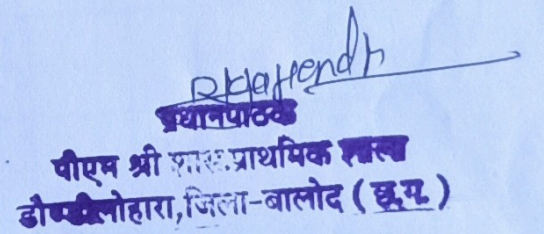 प्रधानपाठक
पीएम श्री शास.प्राथमिक शाला
डौण्डीलोहारा,जिला-बालोद ( छ.ग. )